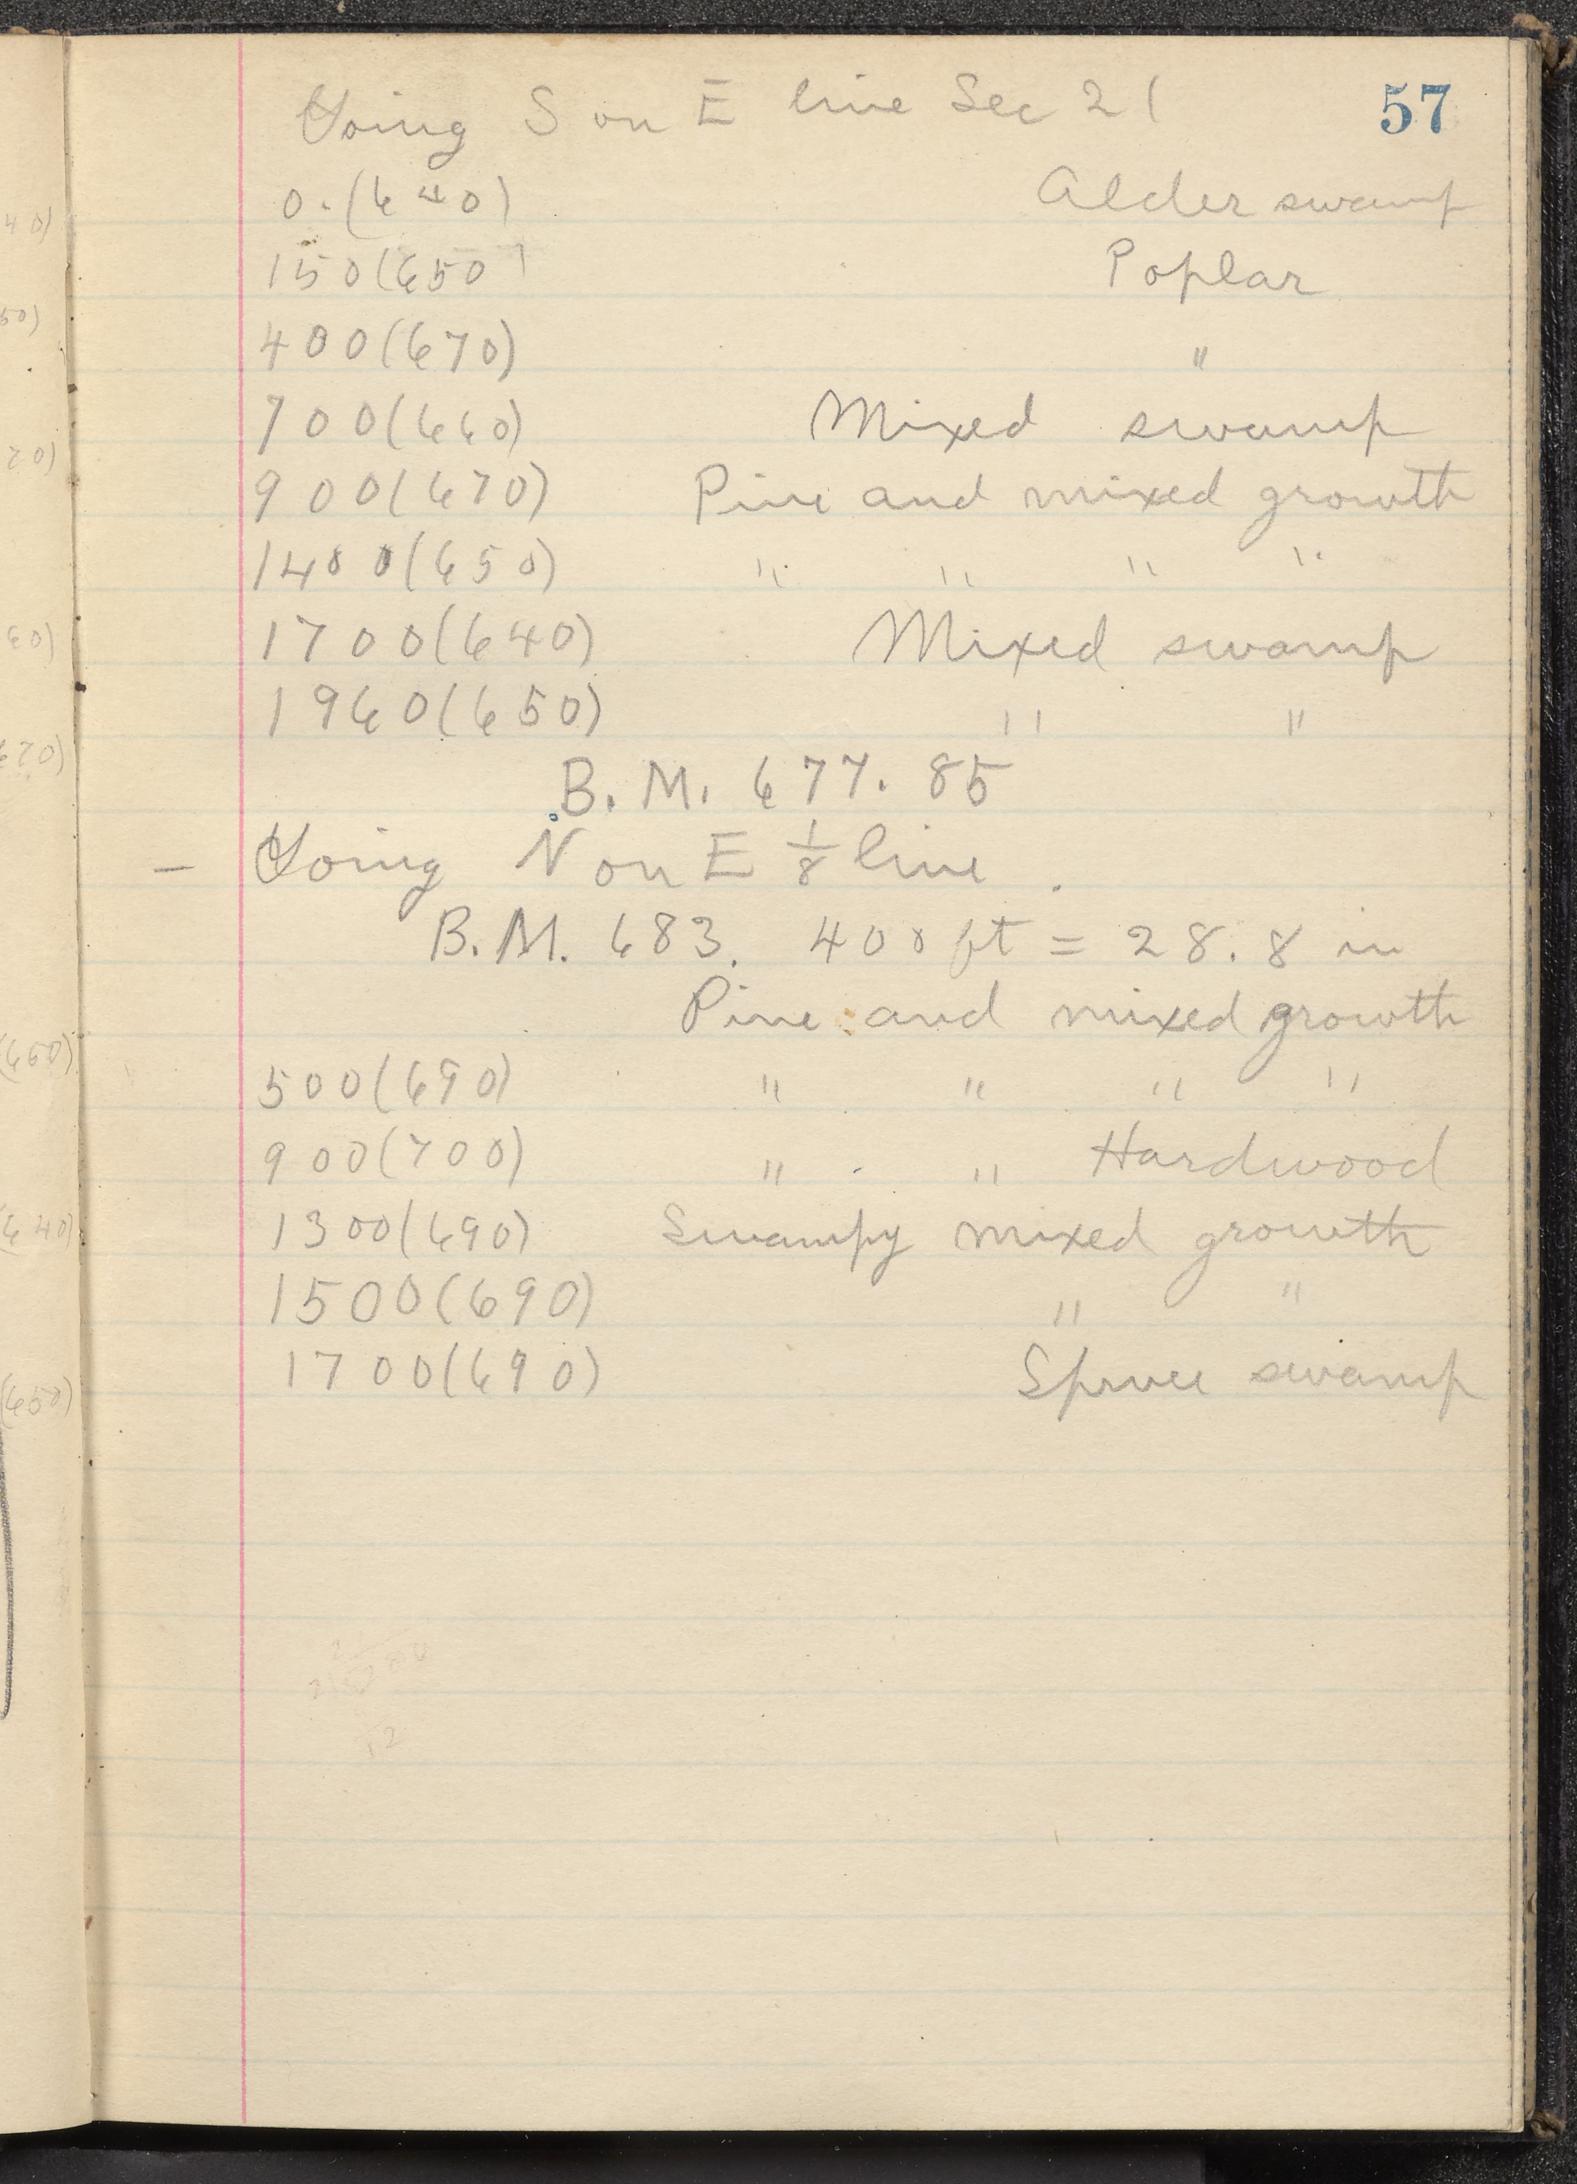 57
Going S on E line Sec 21
0. (640) Alder swamp
150 (650) Poplar
400 (670) "
700 (660) Mixed swamp
900 (670) Pine and mixed growth
1400 (650) " " " "
1700 (640) Mixed swamp
1960 (650) " "
B. M. 677. 85
– Going N on E 1/8 line.
B. M. 683. 400 ft = 28.8 in
Pine and mixed growth
500 (690) " " " "
900 (700) " " Hardwood
1300 (690) Swampy mixed growth
1500 (690) " "
1700 (690) Spruce swamp
12